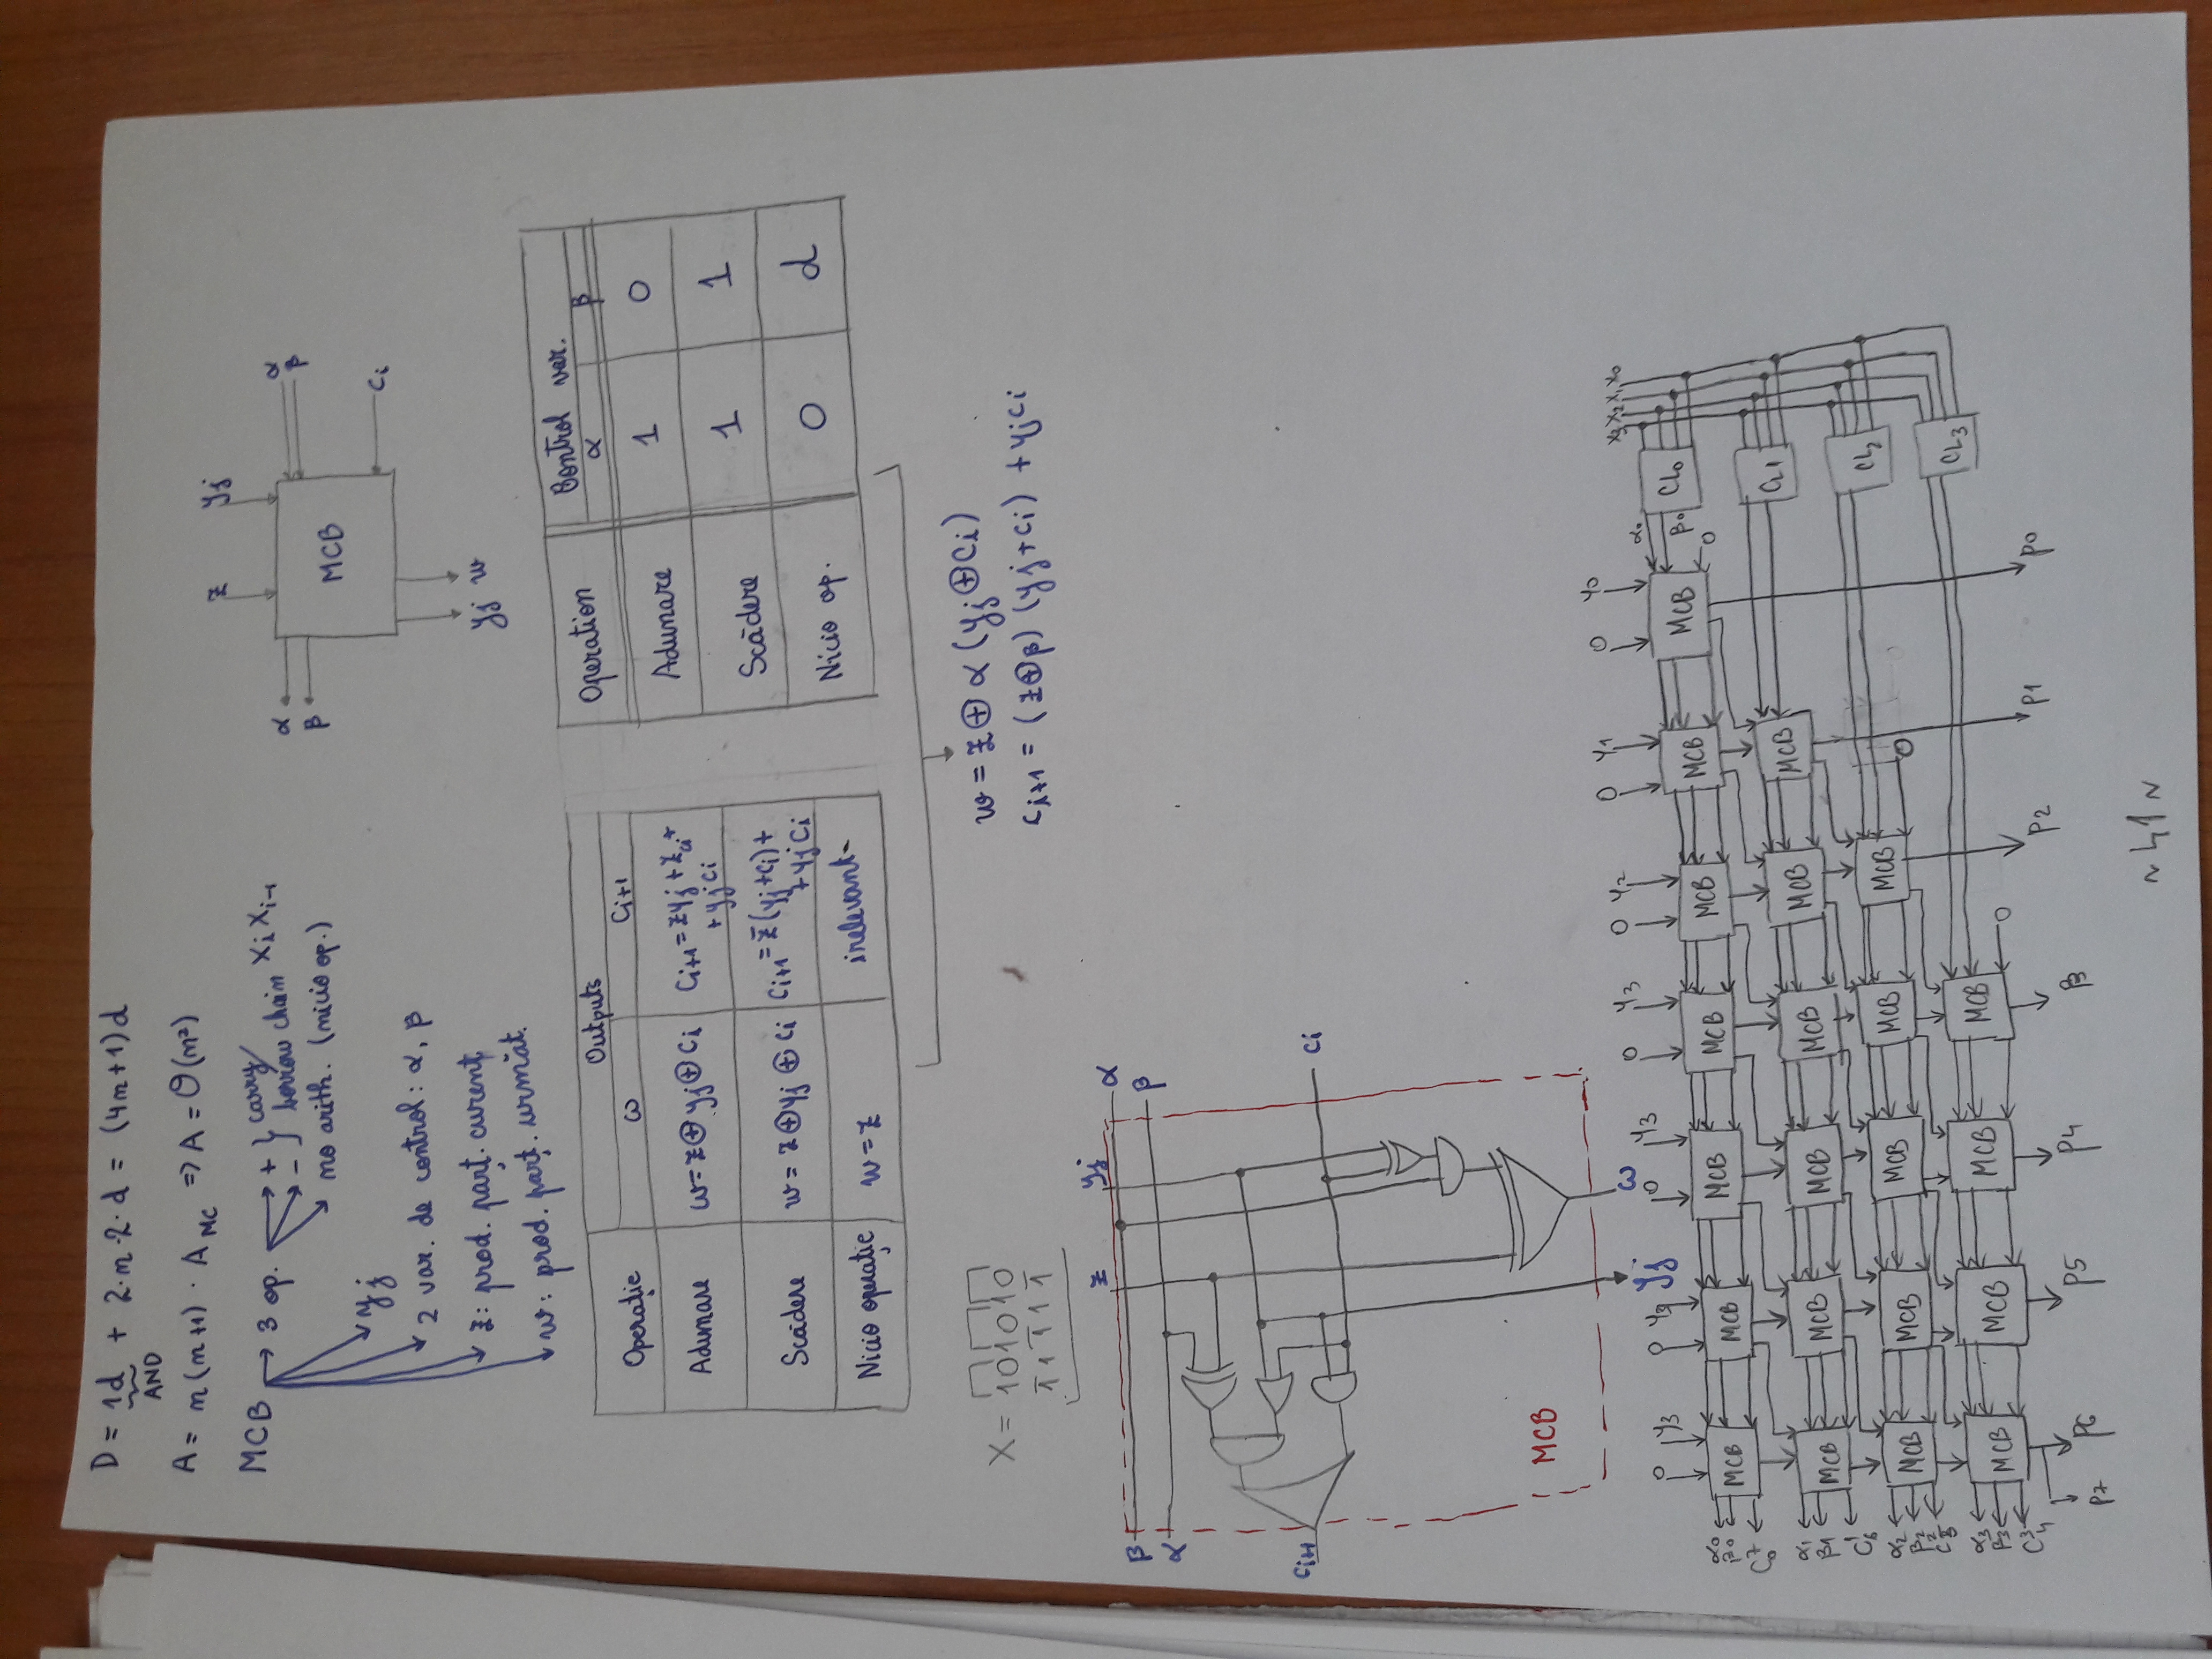 D = 1d + 2·n·2·d = (4n+1)d
AND
A = n(n+1) · A_MC => A = O(n²)
MCB → 3 op. → + } carry/
- } borrow chain x_i x_i-1
no arith. (nicio op.)
y_j
2 var. de control: α, β
z: prod. parț. curent
w: prod. parț. următ.
z y_j
α α
β β
MCB
c_i
y_j w
Operație Outputs
ω c_i+1
Adunare ω = z⊕y_j⊕c_i c_i+1 = zy_j + zc_i +
+ y_jc_i
Scădere w = z⊕y_j⊕c_i c_i+1 = z̄(y_j+c_i) +
+ y_jc_i
Nicio operație w = z irelevant
Operation Control var.
α β
Adunare 1 0
Scădere 1 1
Nicio op. 0 d
w = z⊕α(y_j⊕c_i)
c_i+1 = (z⊕β)(y_j+c_i) + y_jc_i
X = 101010
1̄11̄11̄
z y_j
β α
α β
c_i+1 c_i
MCB
y_j ω
0 y3 0 y3 0 y3 0 y3 0 y2 0 y1 0 y0 x3 x2 x1 x0
α0 β0 c7 0 MCB MCB MCB MCB MCB MCB MCB α0 β0 0 CL0
α1 β1 c6 1 MCB MCB MCB MCB MCB MCB CL1
α2 β2 c5 2 MCB MCB MCB MCB MCB 0 CL2
α3 β3 c4 3 MCB MCB MCB MCB 0 CL3
p7 p6 p5 p4 p3 p2 p1 p0
~41~